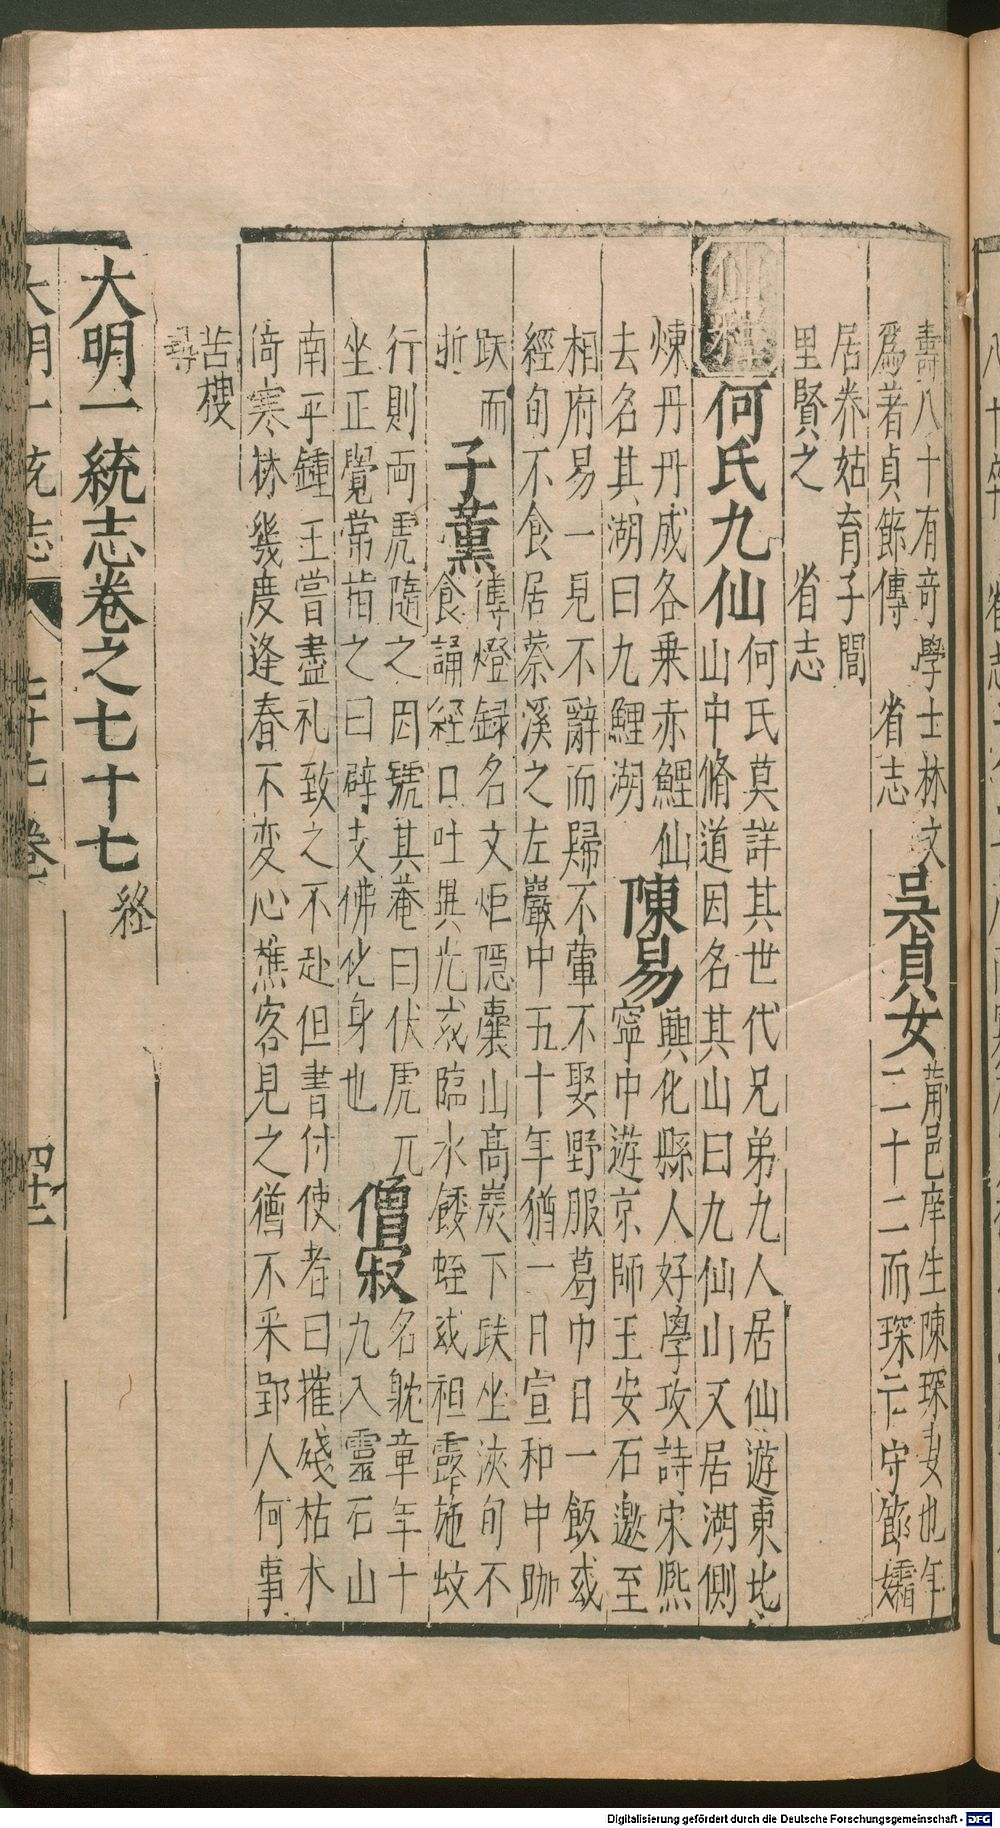 壽八十有奇學士林文
爲著貞節傳　省志
吳貞女
莆邑庠生陳琛妻也年
二十二而琛亡守節孀
居养姑育子閭
里賢之　省志
仙釋
何氏九仙
何氏莫詳其世代兄弟九人居仙遊東北
山中脩道因名其山曰九仙山又居湖側
煉丹丹成各乗赤鯉仙
去名其湖曰九鯉湖
陳易
興化縣人好學攻詩宋熈
寧中遊京師王安石邀至
相府易一見不辭而歸不葷不娶野服葛巾日一飯或
經旬不食居蔡溪之左巖中五十年猶一日宣和中跏
趺而
逝
子薰
傳燈録名文炬隠囊山髙炭下趺坐浹旬不
食誦經口吐異光或臨水餧蛭或袒露施蚊
行則両虎隨之因號其菴曰伏虎兀
坐正覺常指之曰辟支佛化身也
僧寂
名躭章年十
九入靈石山
南平鍾王嘗盡礼致之不赴但書付使者曰摧殘枯木
倚寒林幾度逢春不变心樵客見之猶不釆郢人何事
苦樓
尋
大明一統志卷之七十七
終
大明一统志
七十七卷
四十二
Digitalisierung gefördert durch die Deutsche Forschungsgemeinschaft - DFG